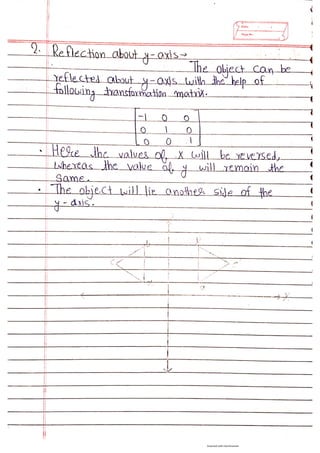 2. Reflection about y-axis →
The object can be
reflected about y-axis with the help of
following transformation matrix.
-1 0 0
0 1 0
0 0 1
• Here the values of x will be reversed,
whereas the value of y will remain the
same.
• The object will lie another side of the
y-axis.